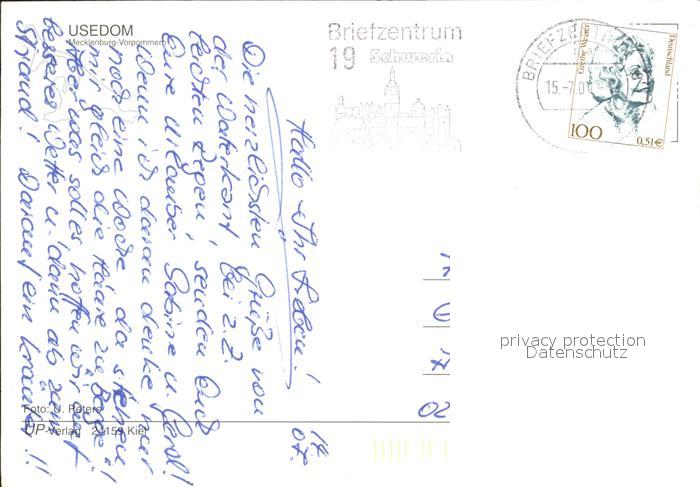 USEDOM
Mecklenburg-Vorpommern
Briefzentrum
19 Schwerin
BRIEFZE
15.-7.0
Grethe Weiser
Deutschland
100
0,51€
Hallo Ihr Lieben!
Die herzlichsten Grüße von
der Waterkant, bei z.Z.
leichten Regen, senden Euch
Eure Urlauber Sabine u. Gerd!
Wenn ich daran denke nur
noch eine Woche, da stehen
mir gleich die Haare zu Berge!
Aber was solls, hoffen wir auf
besseres Wetter u. dann ab zum
Strand! Darauf ein
17
07.
02
privacy protection
Datenschutz
Foto: U. Peters
UP-Verlag 24159 Kiel